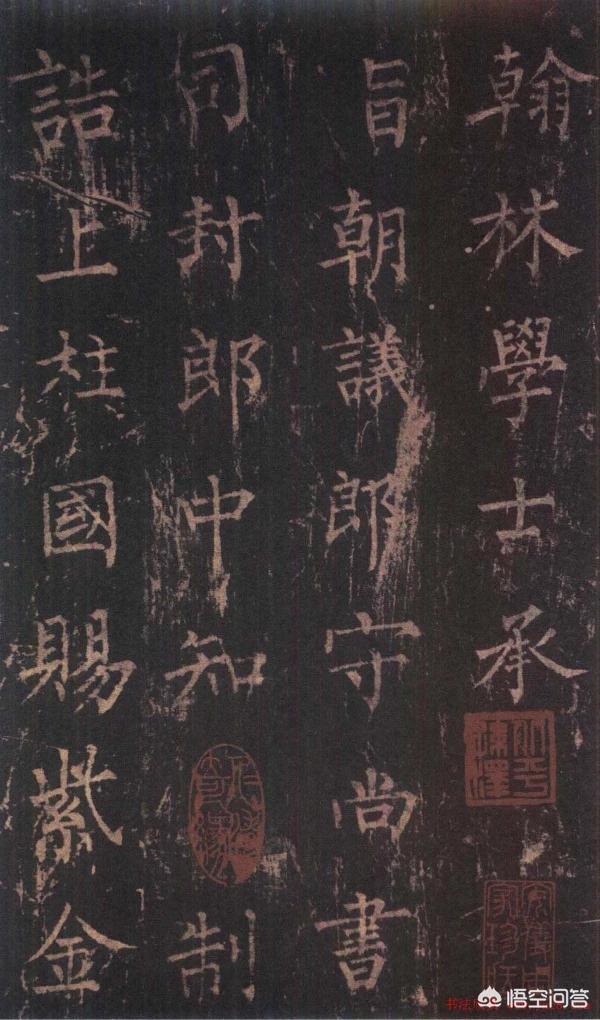 翰林學士承
旨朝議郎守尚書
司封郎中知 制
誥上柱國賜紫金
悟空问答